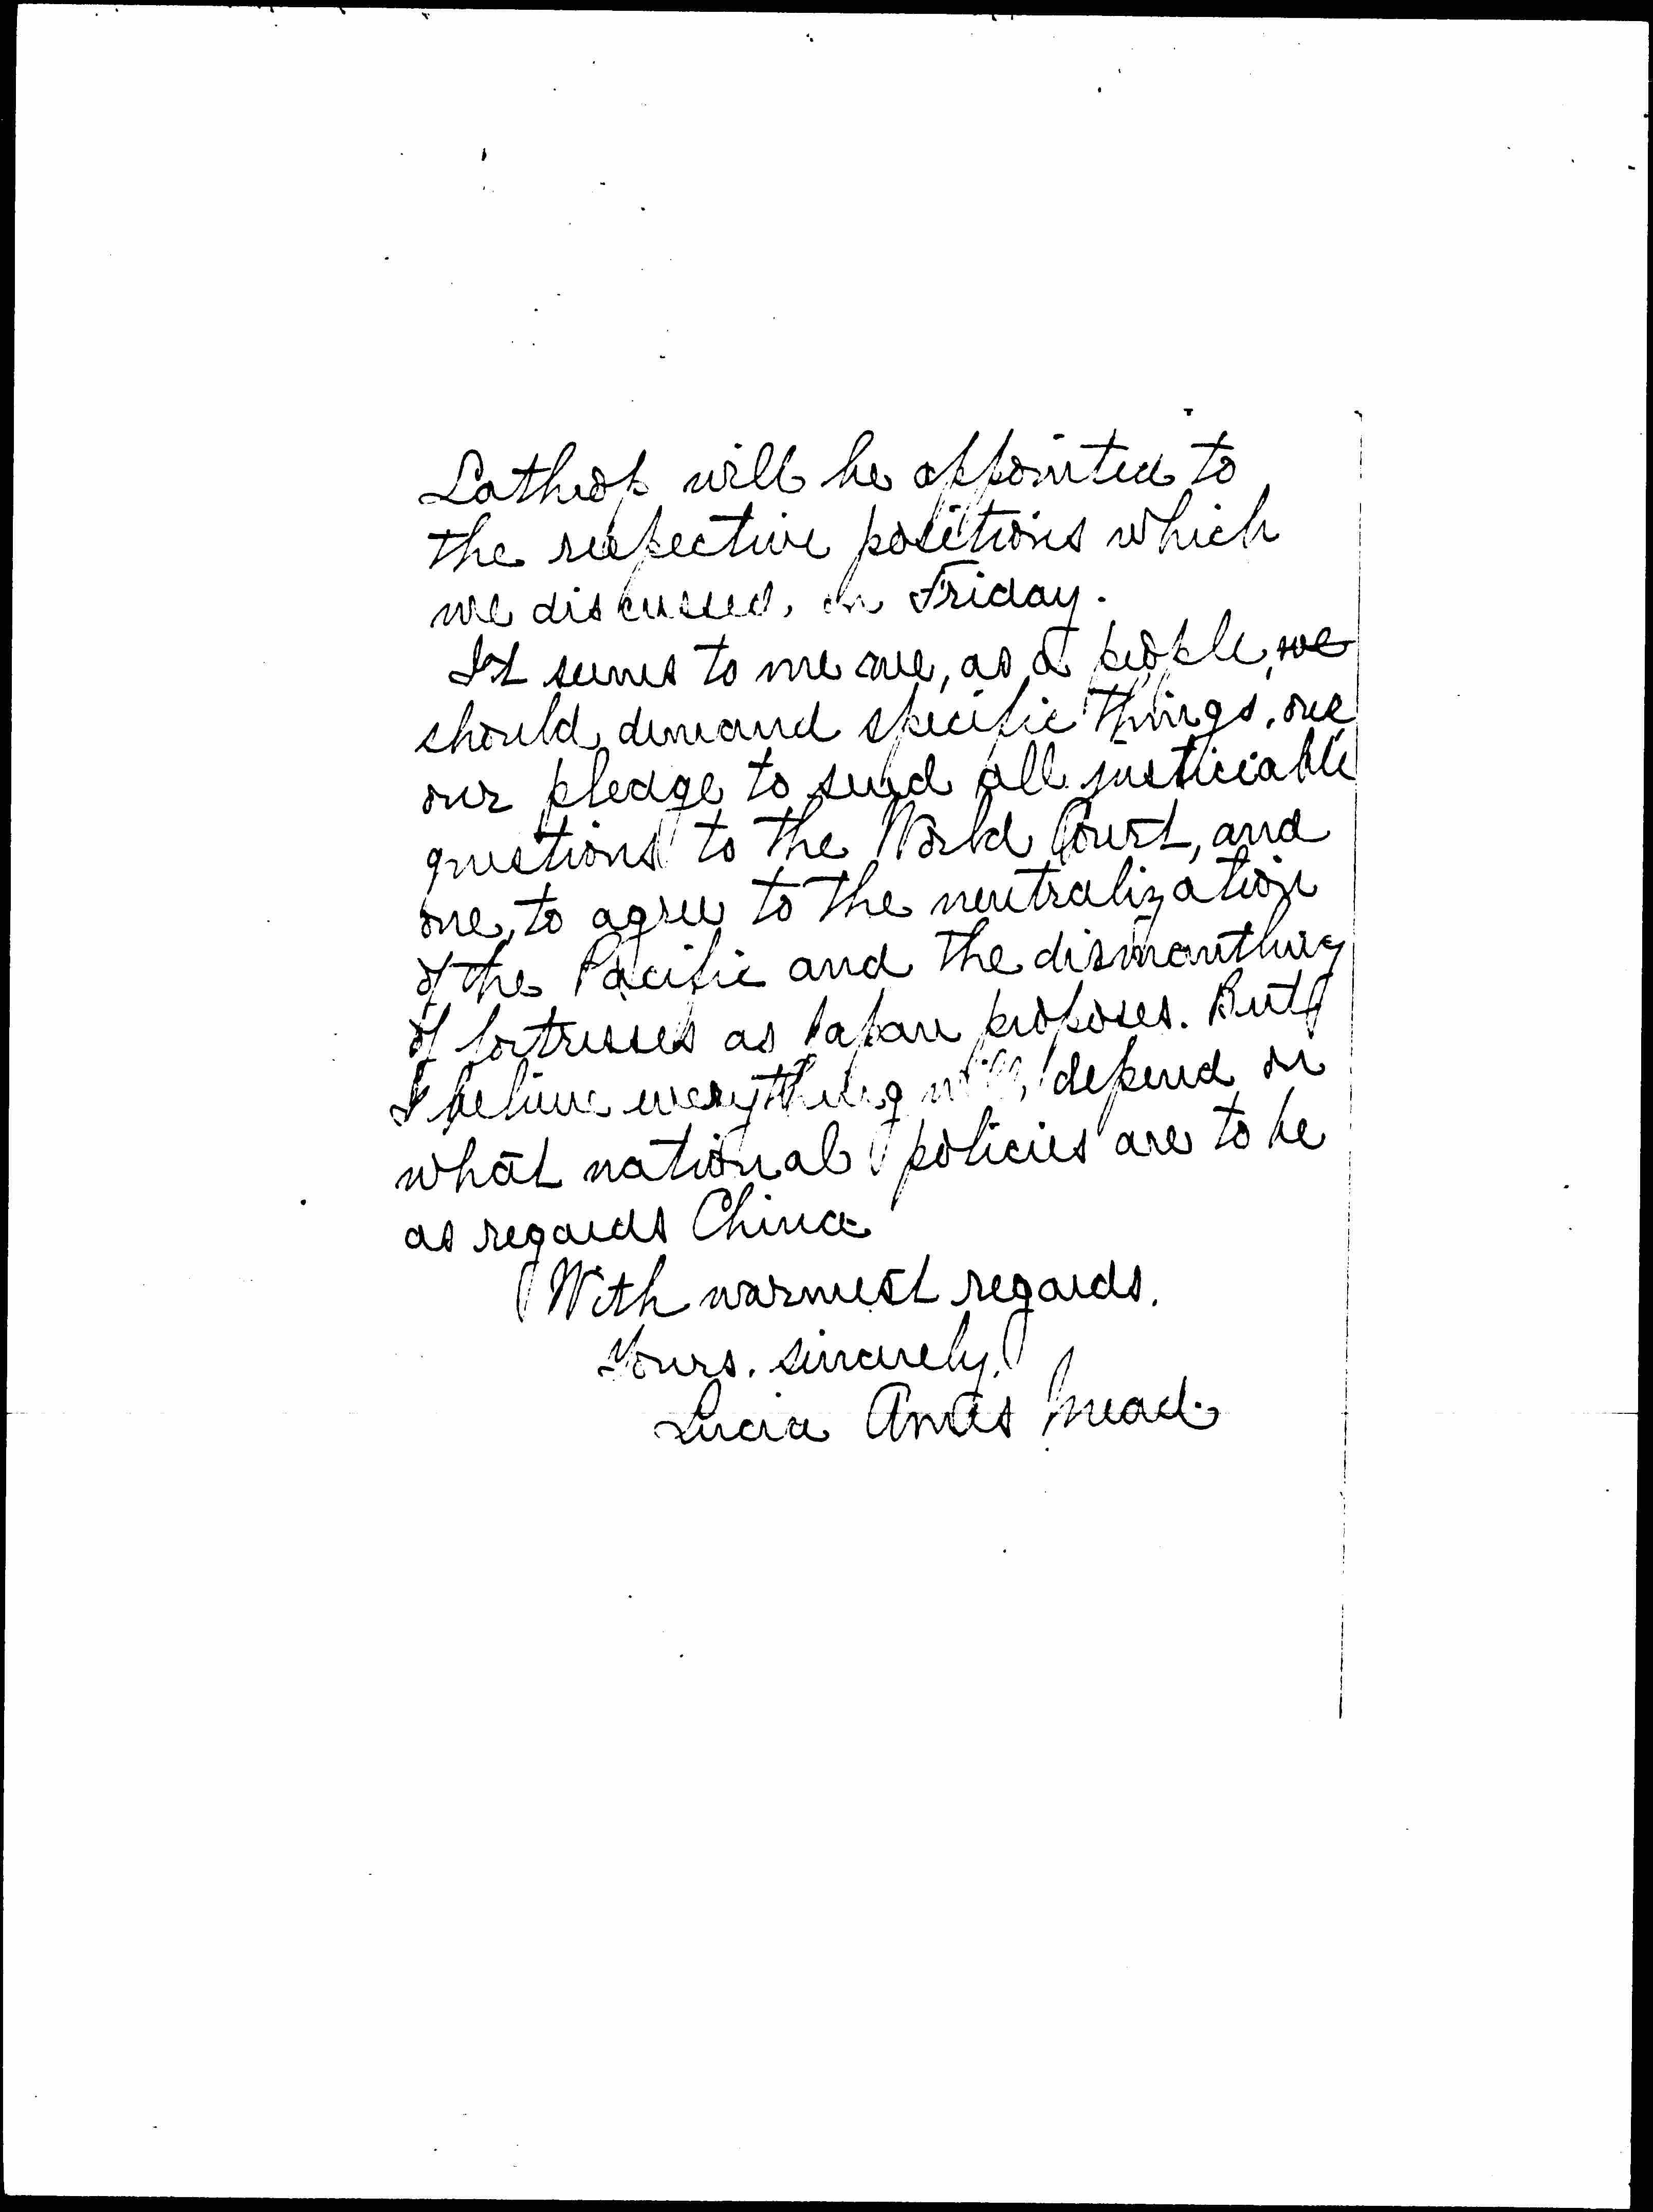 Lathrop will be appointed to
the respective positions which
we discussed, on Friday.
It seems to me we, as a people, we
should demand specific things, one
our pledge to send all justiciable
questions to the World Court, and
one, to agree to the neutralization
of the Pacific and the dismantling
of fortresses as Japan proposes. But
I believe everything will depend on
what national policies are to be
as regards China
With warmest regards.
Yours. sincerely,
Lucia Ames Mead.